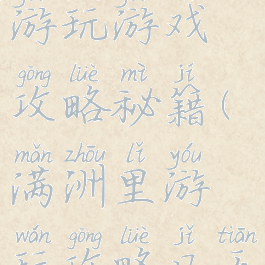 游玩游戏
gōng lüè mì jí
攻略秘籍(
mǎn zhōu lǐ yóu
满洲里游
wán gōng lüè jǐ tiān
玩攻略几天